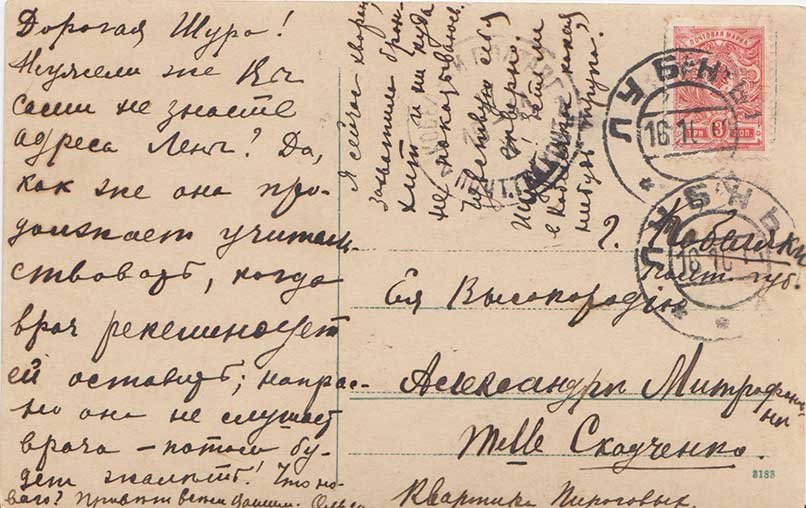 Дорогая Шура!
Неужели же Вы
сами не знаете
адреса Лены? Да,
как же она про-
должает учитель-
ствовать, когда
врач рекеминдует
ей оставить; напрас-
но она не слушает
врача – потом бу-
дет жалеть! Что но-
вого? Привет всем вашим.
Я сейчас хвораю,
захватил брон-
хит и никуда
не показываюсь.
Чувствую себя
скверно.
есть ли
в Кобеляках какая
нибудь труппа?
ПОЧТОВАЯ МАРКА
3 КОП.
ЛУБНЫ
16 1
ЛУБНЫ
16 10
г. Кобеляки
Полт. губ.
Ея Высокородію
Александрѣ Митрофанов-
нѣ
Melle Скадченко.
Квартира Пироговых.
3183